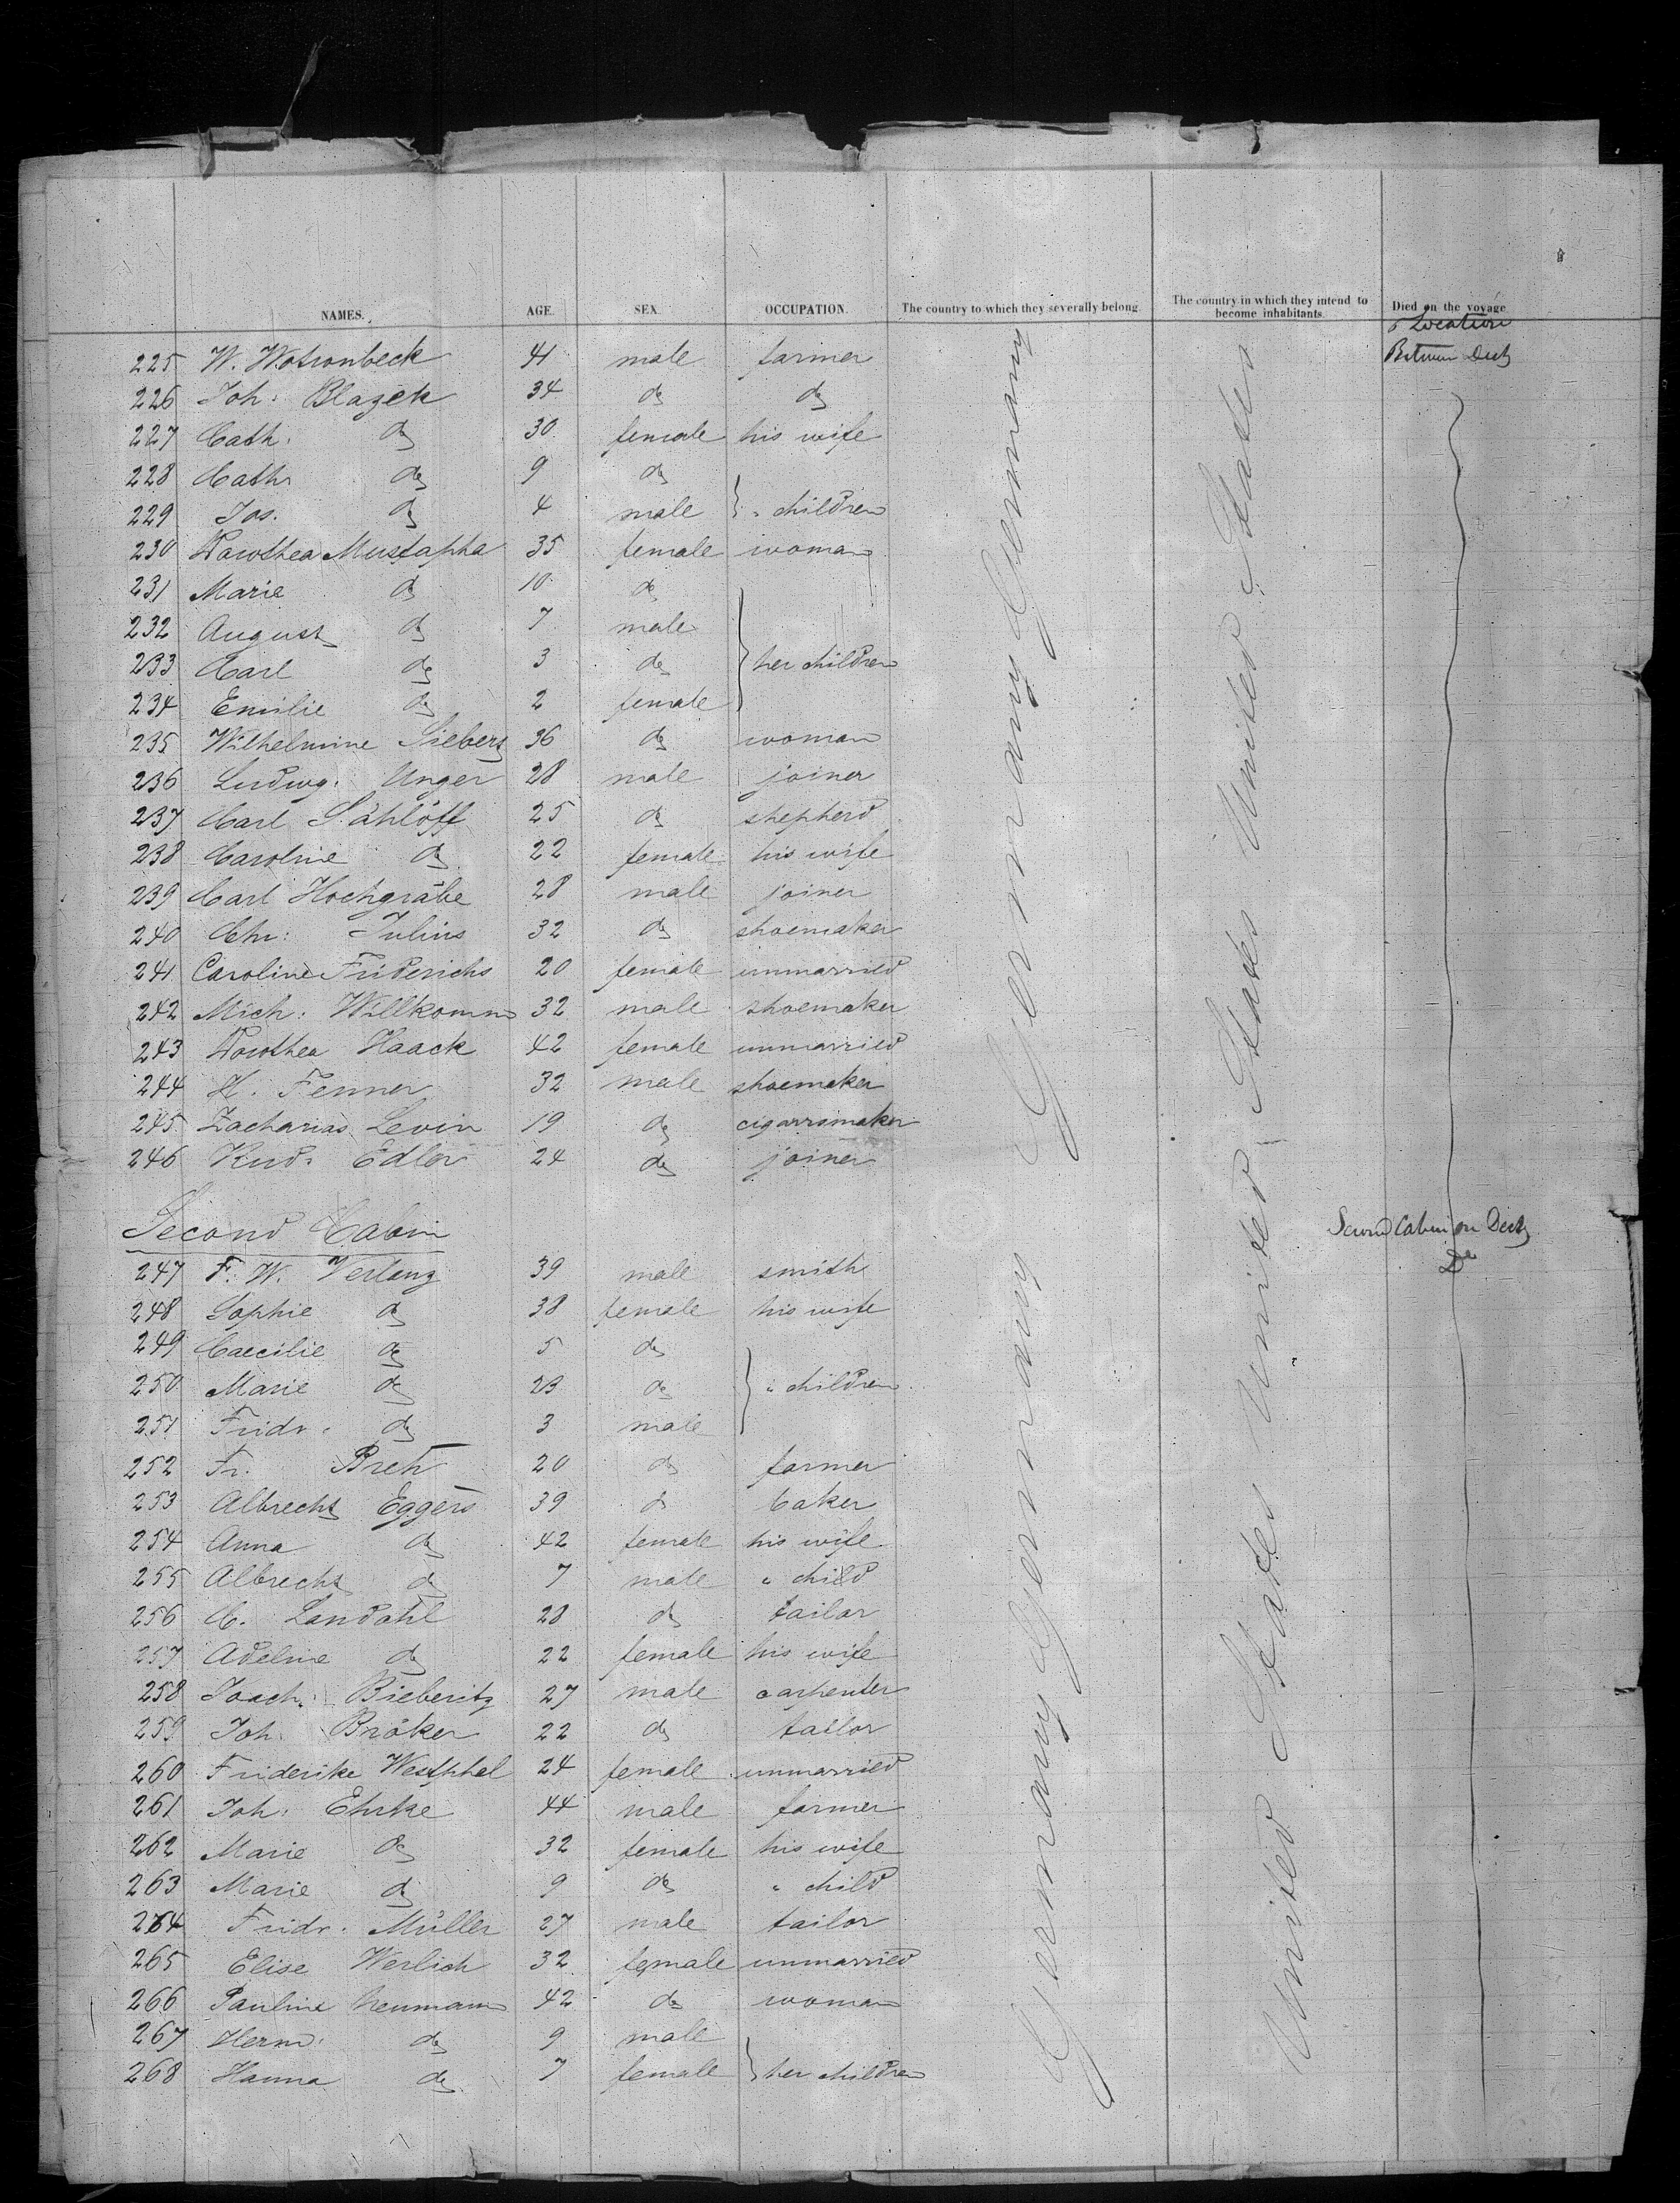 NAMES. AGE. SEX. OCCUPATION. The country to which they severally belong. The country in which they intend to become inhabitants. Died on the voyage
& Location
225 W. Wotronbeck 41 male farmer Between Deck
226 Joh: Blazek 34 do do
227 Cath. do 30 female his wife
228 Cath. do 9 do
229 Jos. do 4 male } " children
230 Dorothea Mustapha 35 female woman
231 Marie do 10 do
232 August do 7 male
233 Carl do 3 do } her children
234 Emilie do 2 female
235 Wilhelmine Siebers 36 do woman
236 Ludwg. Unger 28 male joiner
237 Carl Sahlöff 25 do shepherd
238 Caroline do 22 female his wife
239 Carl Hochgräbe 28 male joiner
240 Chr: Julius 32 do shoemaker
241 Caroline Friderichs 20 female unmarried
242 Mich: Willkomm 32 male shoemaker
243 Dorothea Haack 42 female unmarried
244 H. Fenner 32 male shoemaker
245 Zacharias Levin 19 do cigarrsmaker
246 Rud. Edler 24 do joiner
Germany Germany
United States United States
Second Cabin Second Cabin on Deck
247 F. W. Verlang 39 male smith Do
248 Sophie do 38 female his wife
249 Caecilie do 5 do
250 Marie do 23 do } " children
251 Fridr. do 3 male
252 Fr. Breh 20 do farmer
253 Albrecht Eggers 39 do baker
254 Anna do 42 female his wife
255 Albrecht do 7 male " child
256 C. Landahl 28 do tailor
257 Adeline do 22 female his wife
258 Joach: Bieberitz 27 male carpenter
259 Joh. Bröker 22 do tailor
260 Friderike Westphal 24 female unmarried
261 Joh: Ehrke 44 male farmer
262 Marie do 32 female his wife
263 Marie do 9 do " child
264 Fridr. Müller 27 male tailor
265 Elise Werlich 32 female unmarried
266 Pauline Neumann 42 do woman
267 Herm. do 9 male
268 Hanna do 7 female } her children
Germany Germany
United States United States